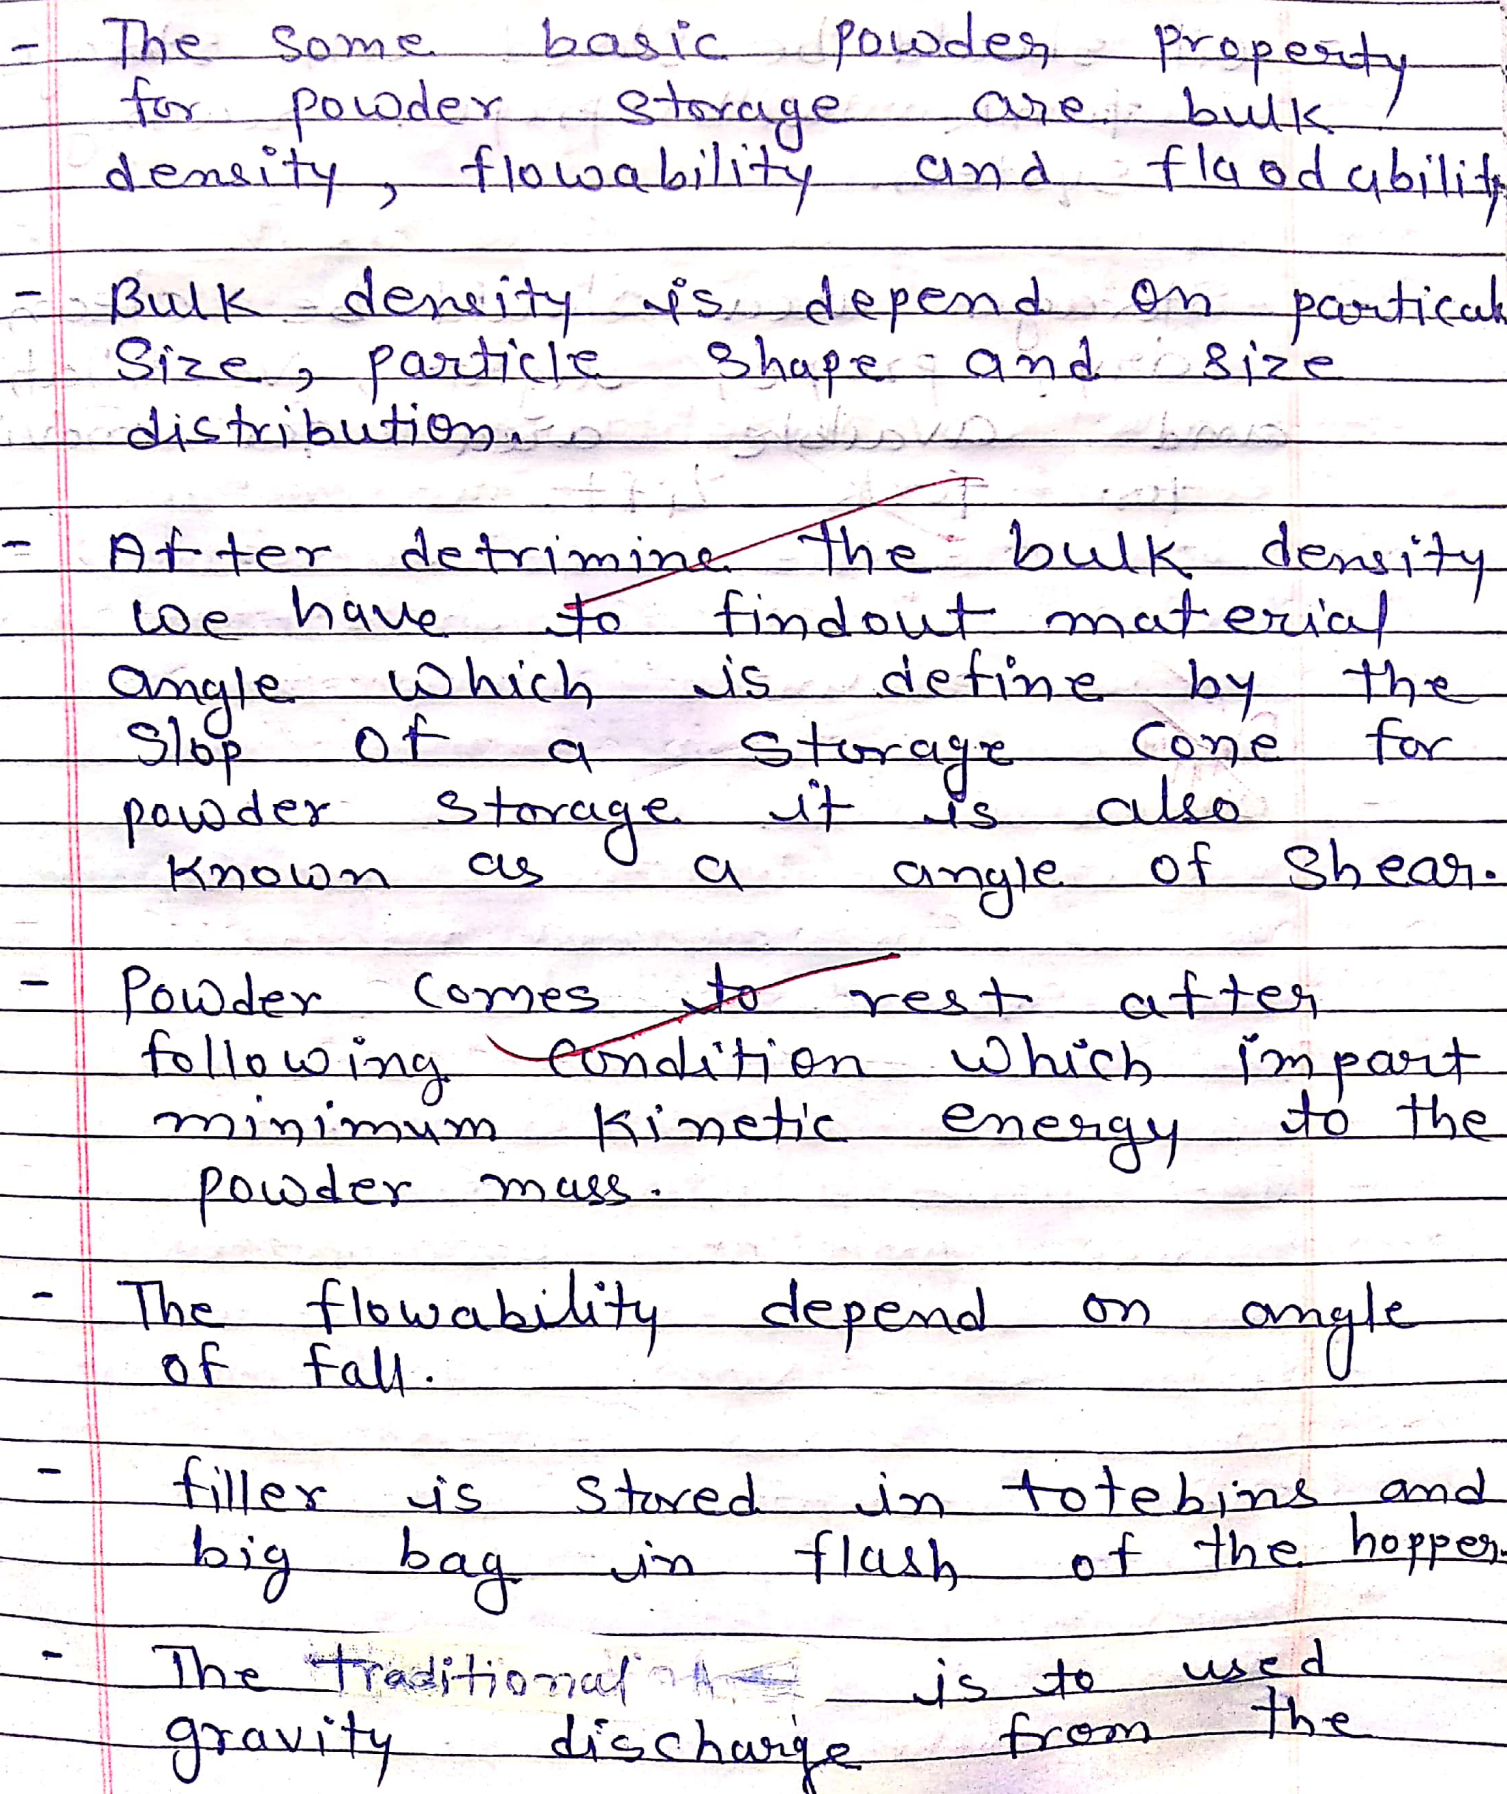 - The some basic powder property
for powder storage are bulk
density, flowability and floodability
- Bulk density is depend on particale
size, particle shape and size
distribution.
- After detrimine the bulk density
we have to findout material
angle which is define by the
slop of a storage cone for
powder storage it is also
known as a angle of shear.
- Powder comes to rest after
following condition which impart
minimum kinetic energy to the
powder mass.
- The flowability depend on angle
of fall.
- filler is stored in totebins and
big bag in flash of the hopper.
- The traditional is to used
gravity discharge from the